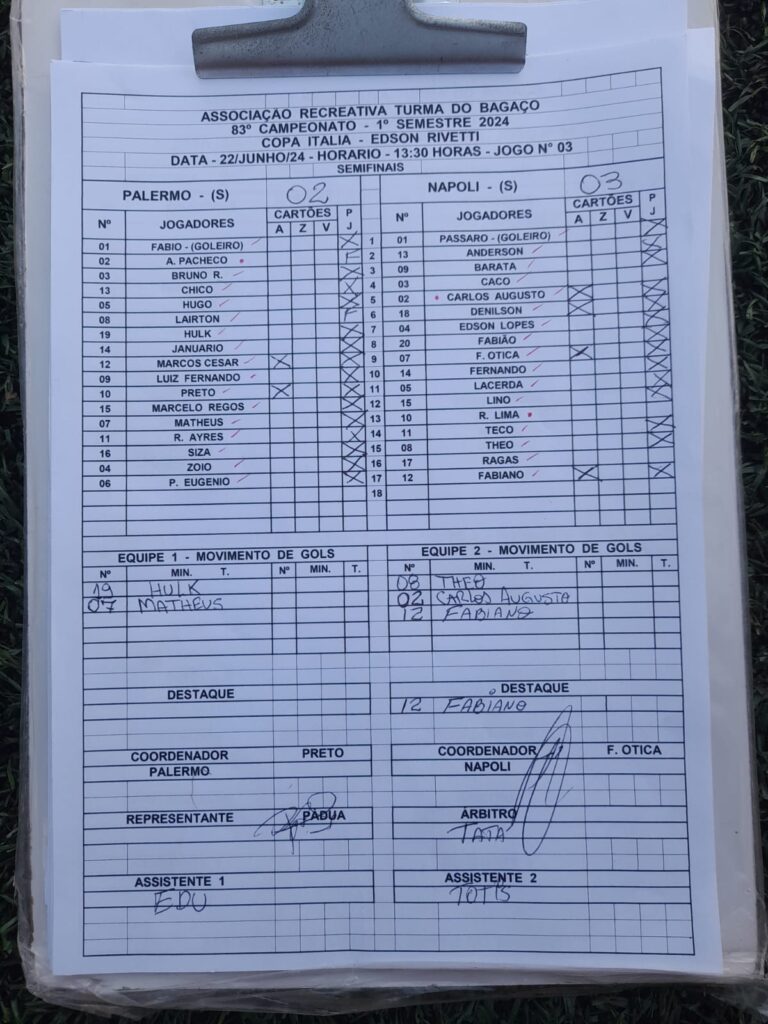 ASSOCIAÇÃO RECREATIVA TURMA DO BAGAÇO
83º CAMPEONATO - 1º SEMESTRE 2024
COPA ITALIA - EDSON RIVETTI
DATA - 22/JUNHO/24 - HORARIO - 13:30 HORAS - JOGO N° 03
SEMIFINAIS
PALERMO - (S) 02
Nº JOGADORES CARTÕES P J
A Z V
01 FABIO - (GOLEIRO) X
02 A. PACHECO F
03 BRUNO R. X
13 CHICO X
05 HUGO X
08 LAIRTON F
19 HULK X
14 JANUARIO X
12 MARCOS CESAR X X
09 LUIZ FERNANDO X
10 PRETO X X
15 MARCELO REGOS X
07 MATHEUS X
11 R. AYRES X
16 SIZA X
04 ZOIO X
06 P. EUGENIO X
NAPOLI - (S) 03
Nº JOGADORES CARTÕES P J
A Z V
1 01 PASSARO - (GOLEIRO) X
2 13 ANDERSON X
3 09 BARATA X
4 03 CACO
5 02 CARLOS AUGUSTO X X
6 18 DENILSON X X
7 04 EDSON LOPES X
8 20 FABIÃO X
9 07 F. OTICA X X
10 14 FERNANDO X
11 05 LACERDA X
12 15 LINO
13 10 R. LIMA X
14 11 TECO X
15 08 THEO X
16 17 RAGAS
17 12 FABIANO X X
18
EQUIPE 1 - MOVIMENTO DE GOLS
Nº MIN. T. Nº MIN. T.
19 HULK
07 MATHEUS
EQUIPE 2 - MOVIMENTO DE GOLS
Nº MIN. T. Nº MIN. T.
08 THEO
02 CARLOS AUGUSTO
12 FABIANO
DESTAQUE
DESTAQUE
12 FABIANO
COORDENADOR PRETO
PALERMO
COORDENADOR F. OTICA
NAPOLI
REPRESENTANTE PADUA
ÁRBITRO
TATA
ASSISTENTE 1
EDU
ASSISTENTE 2
TOTIS